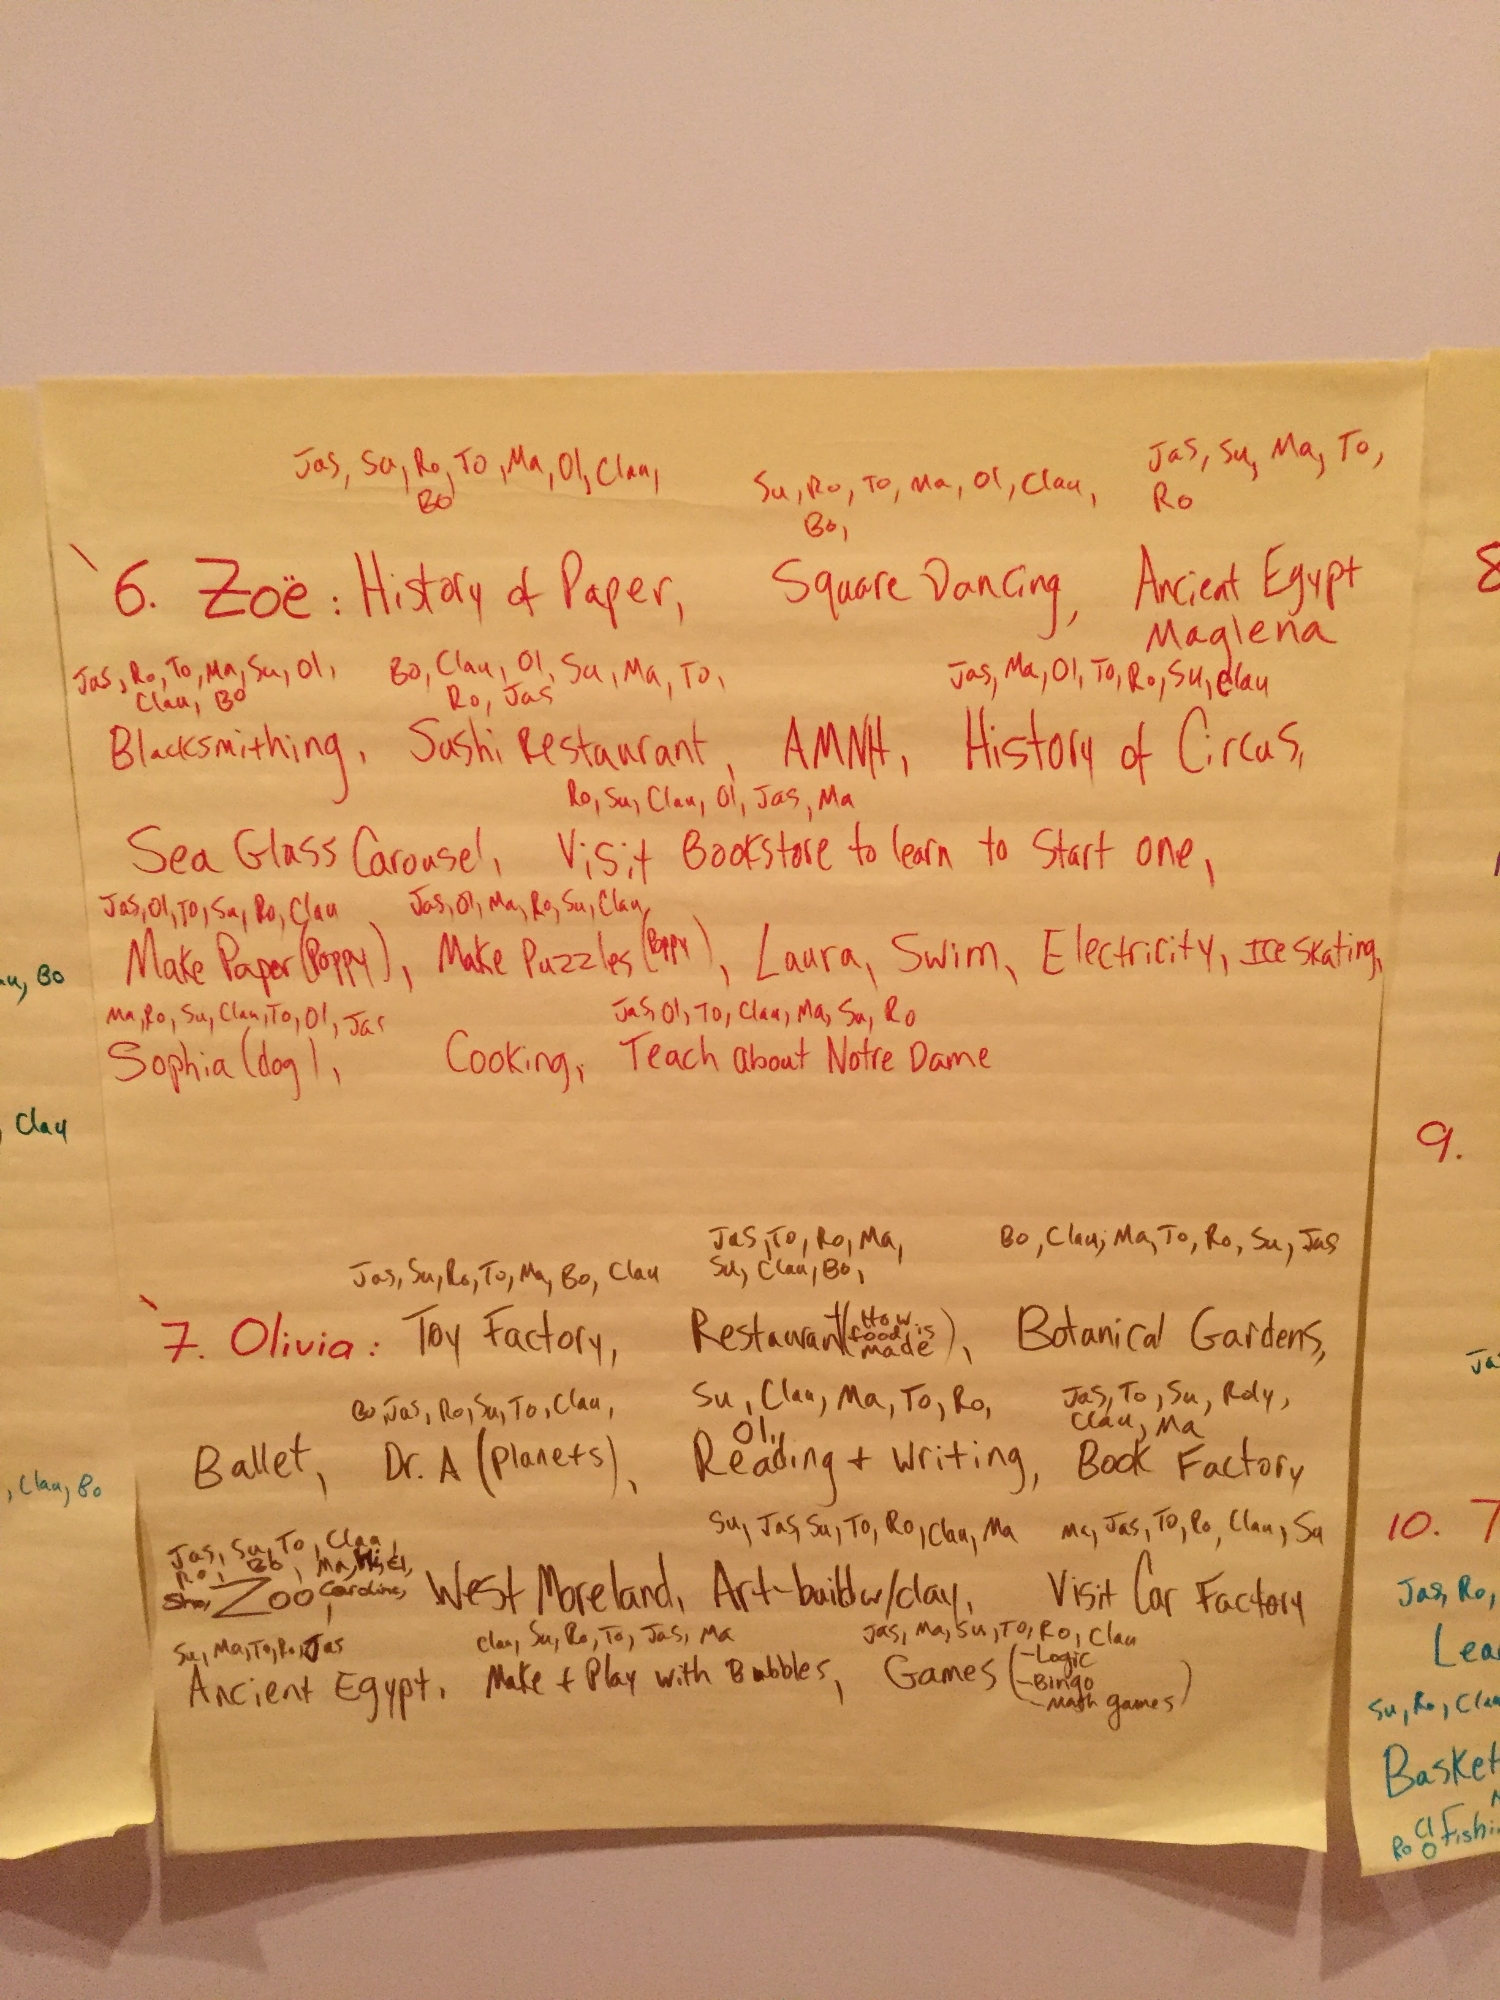 Jas, Su, Ro, To, Ma, Ol, Clau,
Bo
Su, Ro, To, Ma, Ol, Clau,
Bo,
Jas, Su, Ma, To,
Ro
6. Zoë: History of Paper, Square Dancing, Ancient Egypt
Maglena
Jas, Ro, To, Ma, Su, Ol,
Clau, Bo
Bo, Clau, Ol, Su, Ma, To,
Ro, Jas
Jas, Ma, Ol, To, Ro, Su, Clau
Blacksmithing, Sushi Restaurant, AMNH, History of Circus,
Ro, Su, Clau, Ol, Jas, Ma
Sea Glass Carousel, Visit Bookstore to learn to Start one,
Jas, Ol, To, Su, Ro, Clau
Jas, Ol, Ma, Ro, Su, Clau,
Make Paper (Poppy), Make Puzzles (Poppy), Laura, Swim, Electricity, Ice Skating,
Ma, Ro, Su, Clau, To, Ol, Jas
Jas, Ol, To, Clau, Ma, Su, Ro
Sophia (dog), Cooking, Teach about Notre Dame
Jas, Su, Ro, To, Ma, Bo, Clau
Jas, To, Ro, Ma,
Su, Clau, Bo,
Bo, Clau, Ma, To, Ro, Su, Jas
7. Olivia: Toy Factory, Restaurant (How food is made), Botanical Gardens,
Bo, Jas, Ro, Su, To, Clau,
Su, Clau, Ma, To, Ro,
Ol,
Jas, To, Su, Rory,
Clau, Ma
Ballet, Dr. A (Planets), Reading + Writing, Book Factory
Su, Jas, Su, To, Ro, Clau, Ma
Ma, Jas, To, Ro, Clau, Su
Jas, Su, To, Clau,
Ro, Bo, Ma,
Zoo, Caroline, West Moreland, Art-build w/clay, Visit Car Factory
Su, Ma, To, Ro, Jas
Clau, Su, Ro, To, Jas, Ma
Jas, Ma, Su, To, Ro, Clau
Ancient Egypt, Make + Play with Bubbles, Games (-Logic
-Bingo
-Math games)
Bo
Clau
, Clau, Bo
8
9.
10.
Jas, Ro,
Su, Ro, Clau
Ro